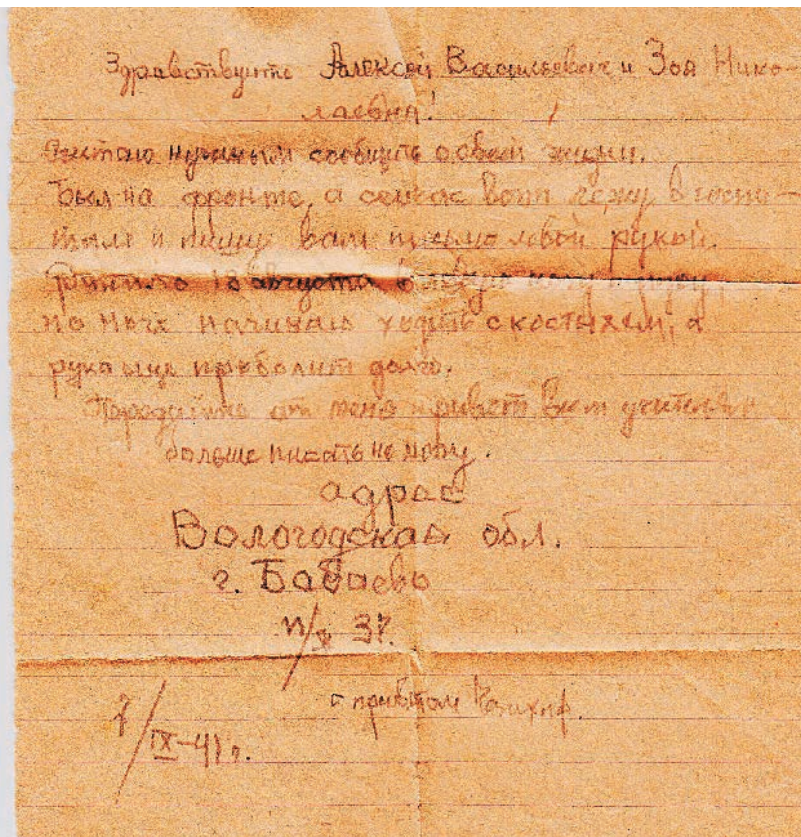 Здравствуйте Алексей Васильевич и Зоя Нико-
лаевна!
Считаю нужным сообщить о своей жизни.
Был на фронте, а сейчас вот лежу в госпи-
тале и пишу вам письмо левой рукой.
Ранило 18 августа в левую ногу и руку,
по ноге начинаю ходить с костылем, а
рука еще проболит долго.
Передайте от меня привет всем учителям
больше писать не могу.
адрес
Вологодская обл.
г. Бабаево
п/я 37.
с приветом
7/IX-41 г.